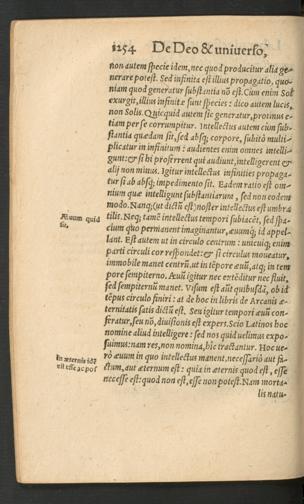 1254 De Deo & uniuerso,
non autem specie idem, nec quod producitur alia ge-
nerare potest. Sed infinita est illius propagatio, quo-
niam quod generatur substantia nō est. Cùm enim Sol
exurgit, illius infinitæ sunt species: dico autem lucis,
non Solis. Quicquid autem sic generatur, protinus e-
tiam per se corrumpitur. Intellectus autem cùm sub-
stantia quædam sit, sed absq; corpore, subitò multi-
plicatur in infinitum: audientes enim omnes intelli-
gunt: & si hi proferrent qui audiunt, intelligerent &
alij non minus. Igitur intellectus infinities propaga-
tur si ab absq; impedimento sit. Eadem ratio est om-
nium quæ intelligunt substantiarum, sed non eodem
modo. Nanq; (ut dictū est) noster intellectus est umbra
tilis. Neq; tamē intellectus tempori subiacēt, sed spa-
cium quo permanent imaginantur, æuumq; id appel-
lant. Est autem ut in circulo centrum: unicuiq; enim
parti circuli correspondet: & si circulus moueatur,
immobile manet centrū, ut in tēpore æuū, atq; in tem
pore sempiterno. Aeuū igitur nec extēditur nec fluit,
sed sempiternū manet. Visum est aūt quibusdā, ob id
tēpus circulo finiri: at de hoc in libris de Arcanis æ-
ternitatis satis dictū est. Seu igitur tempori æuū con-
feratur, seu nō, diuisionis est expers. Scio Latinos hoc
nomine aliud intelligere: sed nos quid uelimus expo-
suimus: nam res, non nomina, hîc tractantur. Hoc ue-
rò æuum in quo intellectus manent, necessariò aut fi-
ctum, aut æternum est: quia in æternis quod est, esse
necesse est: quod non est, esse non potest. Nam morta-
lis natu-
Aeuum quid
sit.
In æternis idē
est esse ac pos